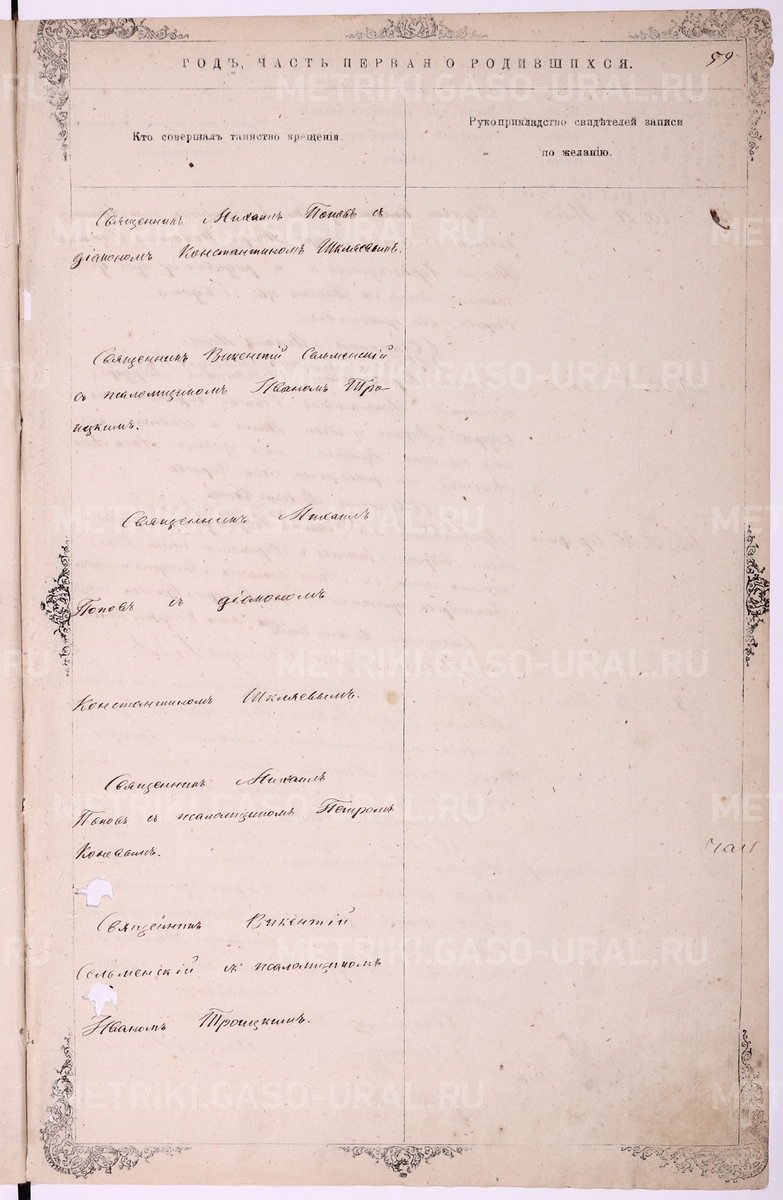 ГОДЪ, ЧАСТЬ ПЕРВАЯ О РОДИВШИХСЯ.
59
Кто совершалъ таинство крещенія
Рукоприкладство свидѣтелей записи
по желанію.
Священникъ Михаилъ Поповъ съ
діакономъ Константиномъ Шкляевымъ.
Священникъ Викентій Сельменскій
съ псаломщикомъ Иваномъ Тро
ицкимъ.
Священникъ Михаилъ
Поповъ съ діакономъ
Константиномъ Шкляевымъ.
Священникъ Михаилъ
Поповъ съ псаломщикомъ Петромъ
Коневымъ.
Священникъ Викентій
Сельменскій съ псаломщикомъ
Иваномъ Троицкимъ.
METRIKI.GASO-URAL.RU